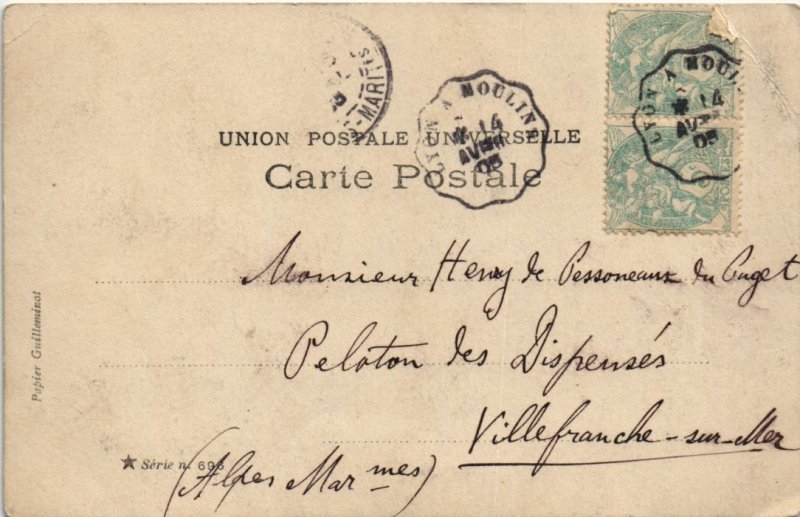 UNION POSTALE UNIVERSELLE
Carte Postale
LYON A MOULIN
14
AVR
05
LYON A MOULI
14
AV
05
MARIT
Monsieur Henry de Pessoneaux du Puget
Peloton des Dispensés
Villefranche-sur-Mer
(Alpes Mar mes)
Papier Guilleminot
★ Série n. 696